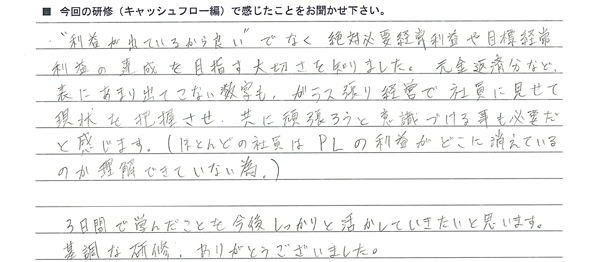 ■ 今回の研修（キャッシュフロー編）で感じたことをお聞かせ下さい。
・"利益が出ているから良い"でなく 絶対必要経常利益や目標経常
利益の達成を目指す大切さを知りました。 元金返済分など、
表にあまり出てこない数字も、ガラス張り経営で社員に見せて
現状を把握させ、共に頑張ろうと意識づける事も必要だ
と感じます。（ほとんどの社員はPLの利益がどこに消えている
のか理解できていない為。）
3日間で学んだことを今後しっかりと活かしていきたいと思います。
基調な研修、ありがとうございました。